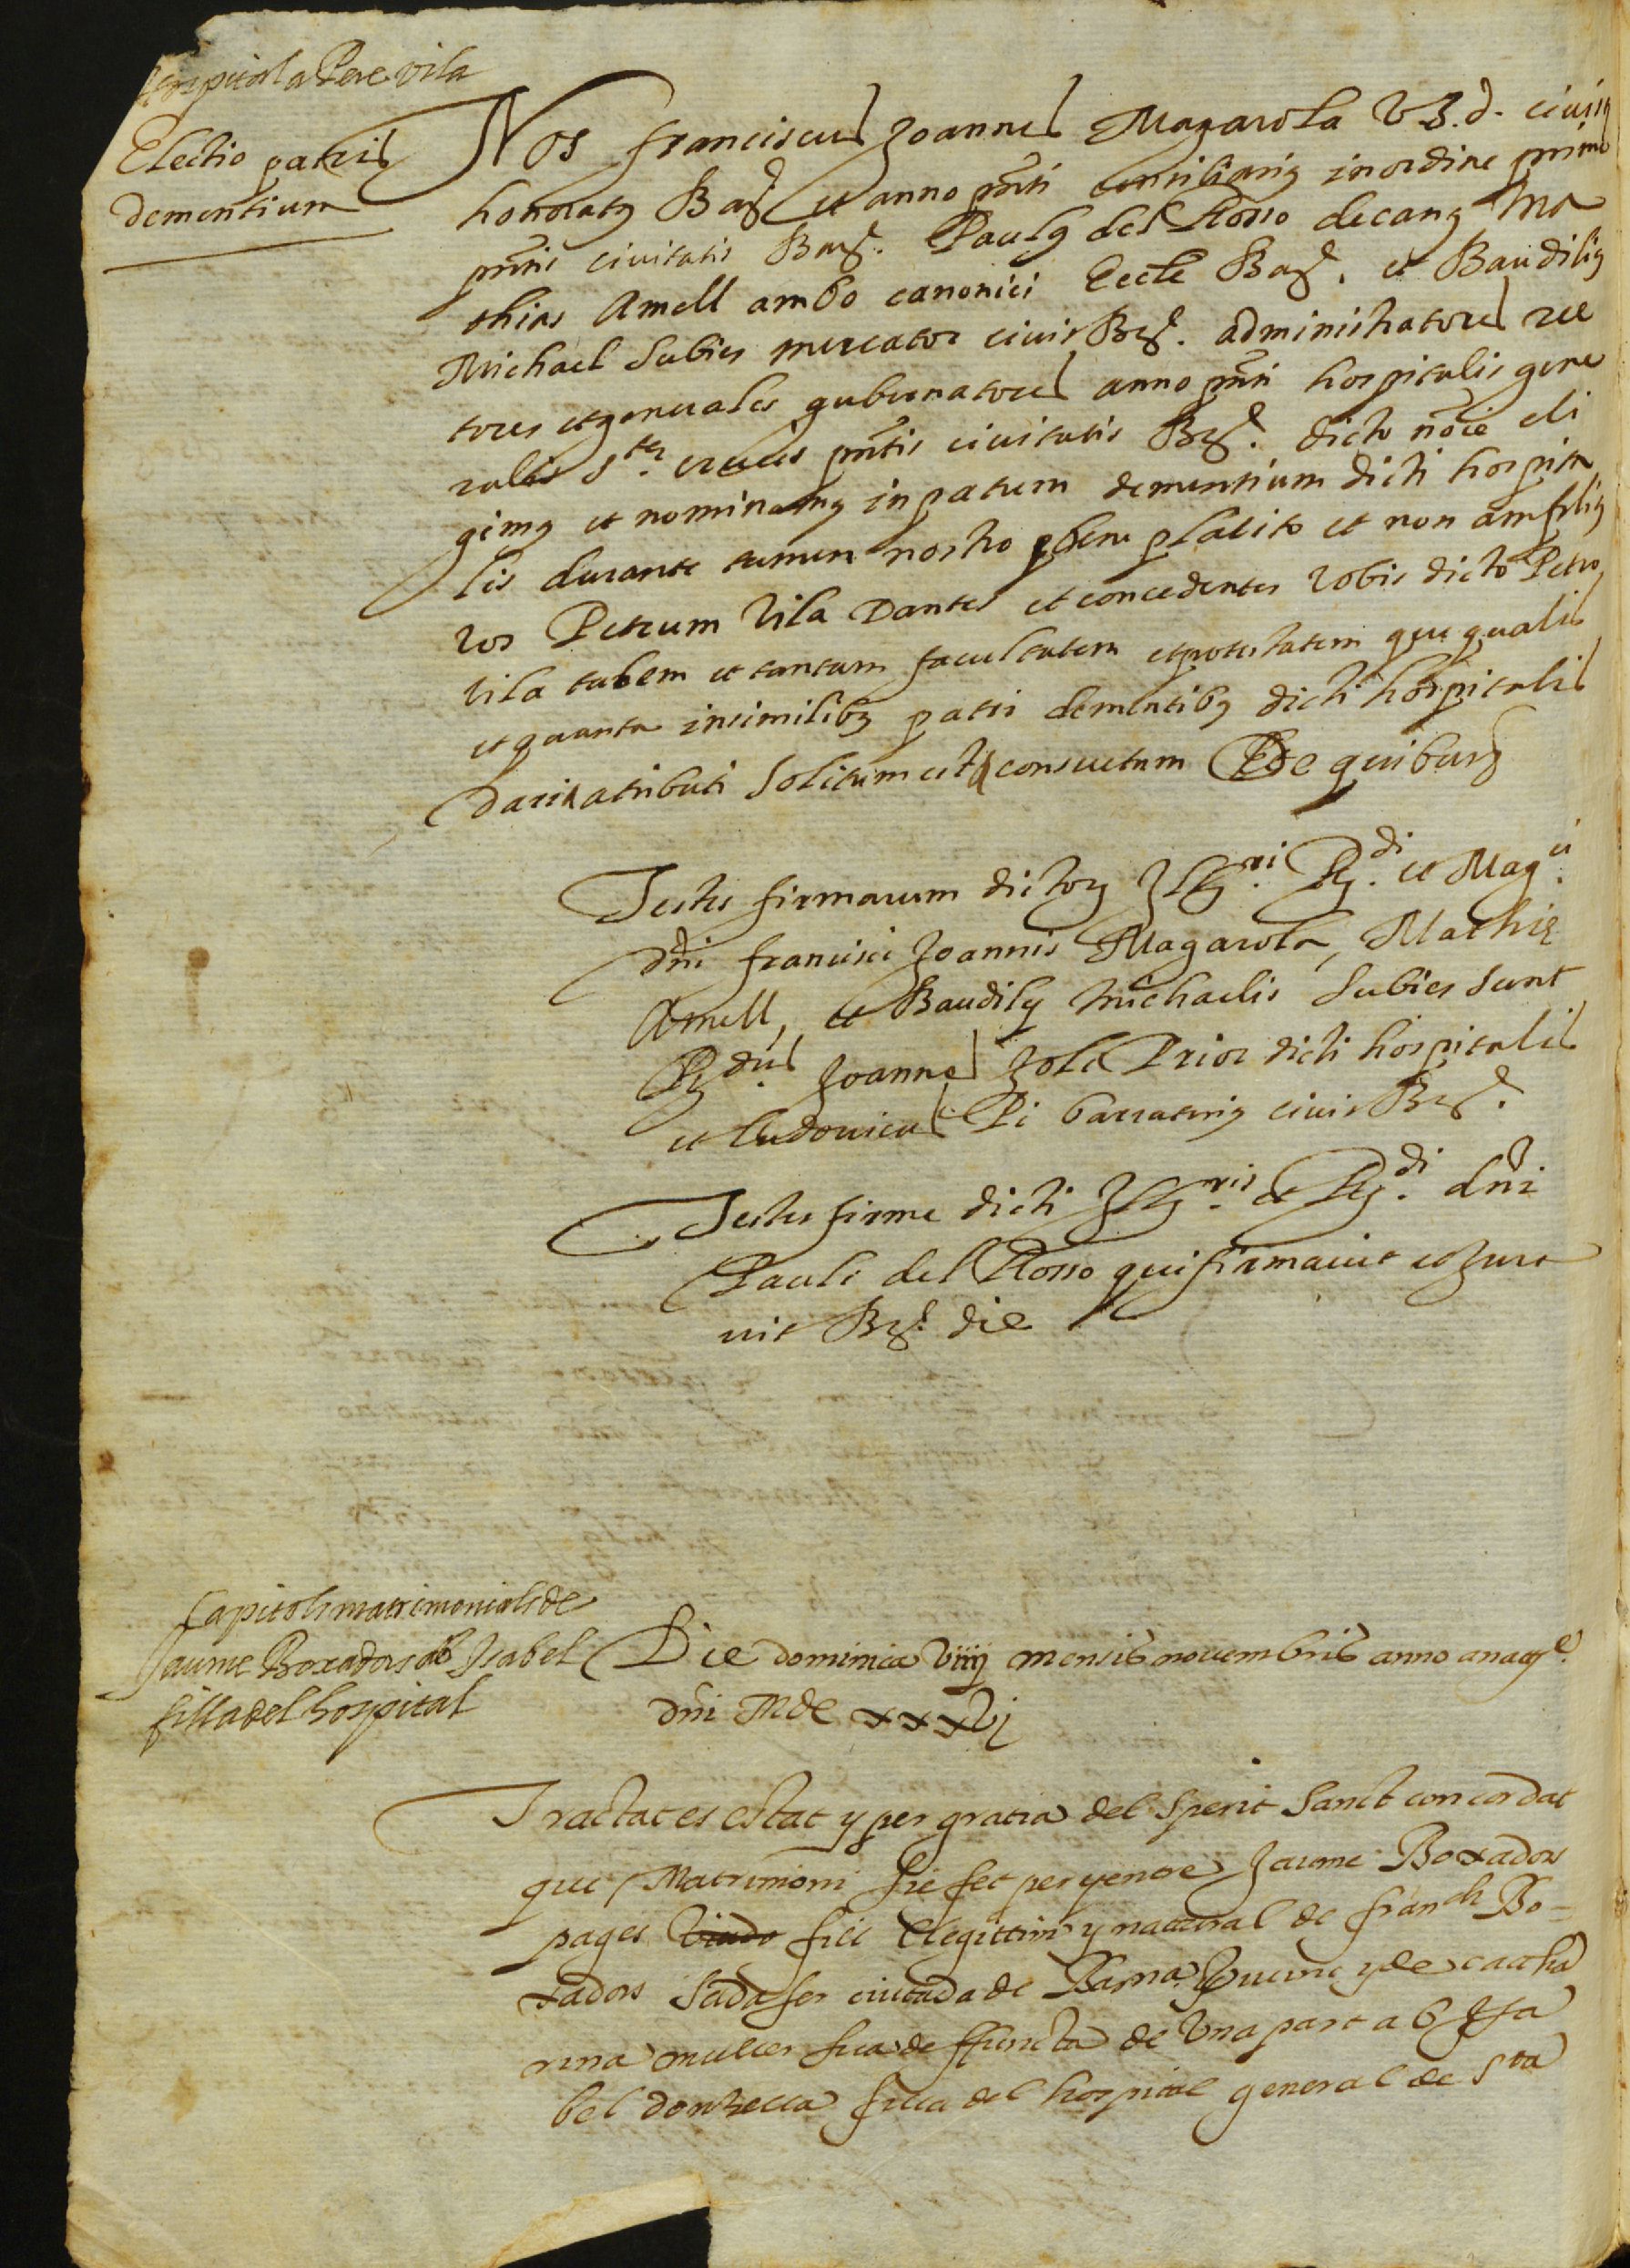 hospital a Pere vila
Electio patris
dementium
Nos franciscus Joannes Magarola V.J.d. civis
honoratus Barẽ et anno pñti consiliarius in ordine primo
pñtis civitatis Barẽ. Paulus del Rosso decanus Ma
thias Amell ambo canonici Eccle Barẽ. et Baudilius
Michael Subies mercator civis Brẽ. administratores rec
tores et generales gubernatores anno pñti hospitalis gene
ralis Ste. crucis pñtis civitatis Brẽ. dicto noie eli
gimus et nominamus in patrem dementium dicti hospita
lis durante tamen nostro bene placito et non
vos Petrum Vila Dantes et concedentes vobis dicto Petro
vila talem et tantam facultatem et potestatem que qualis
et quanta in similibus patri dementibus dicti hospitalis
dari atributi solitum est consuetum De quibus
Testes firmarum dictorum Illm.ri Rdi. et Magci.
dñi francisci Joannis Magarola, Mathie
Amell, et Baudily Michaelis Subies sunt
Rdus. Joannes Prior dicti hospitalis
et Ludovicus Pi civis Brẽ.
Testes firme dicti Ill.ris et Rdi. dñi
Pauli del Rosso qui firmavit et jura
vit Brẽ. die
Capitols matrimonials de
Jaume Boxadors ab Isabel
filla del hospital
Die dominica viiij mensis novembris anno a nate.
dñi Mdcxxxvj
Tractat es estat y per gratia del Sperit Sanct concordat
que Matrimoni sie fet per y entre Jaume Boxadors
pages viudo fill llegittim y natural de franch Bo=
xados ciutada de Barna y de Catha
rina muller sua deffuncta de una part ab Isa
bel donzella filla del hospital general de Sta